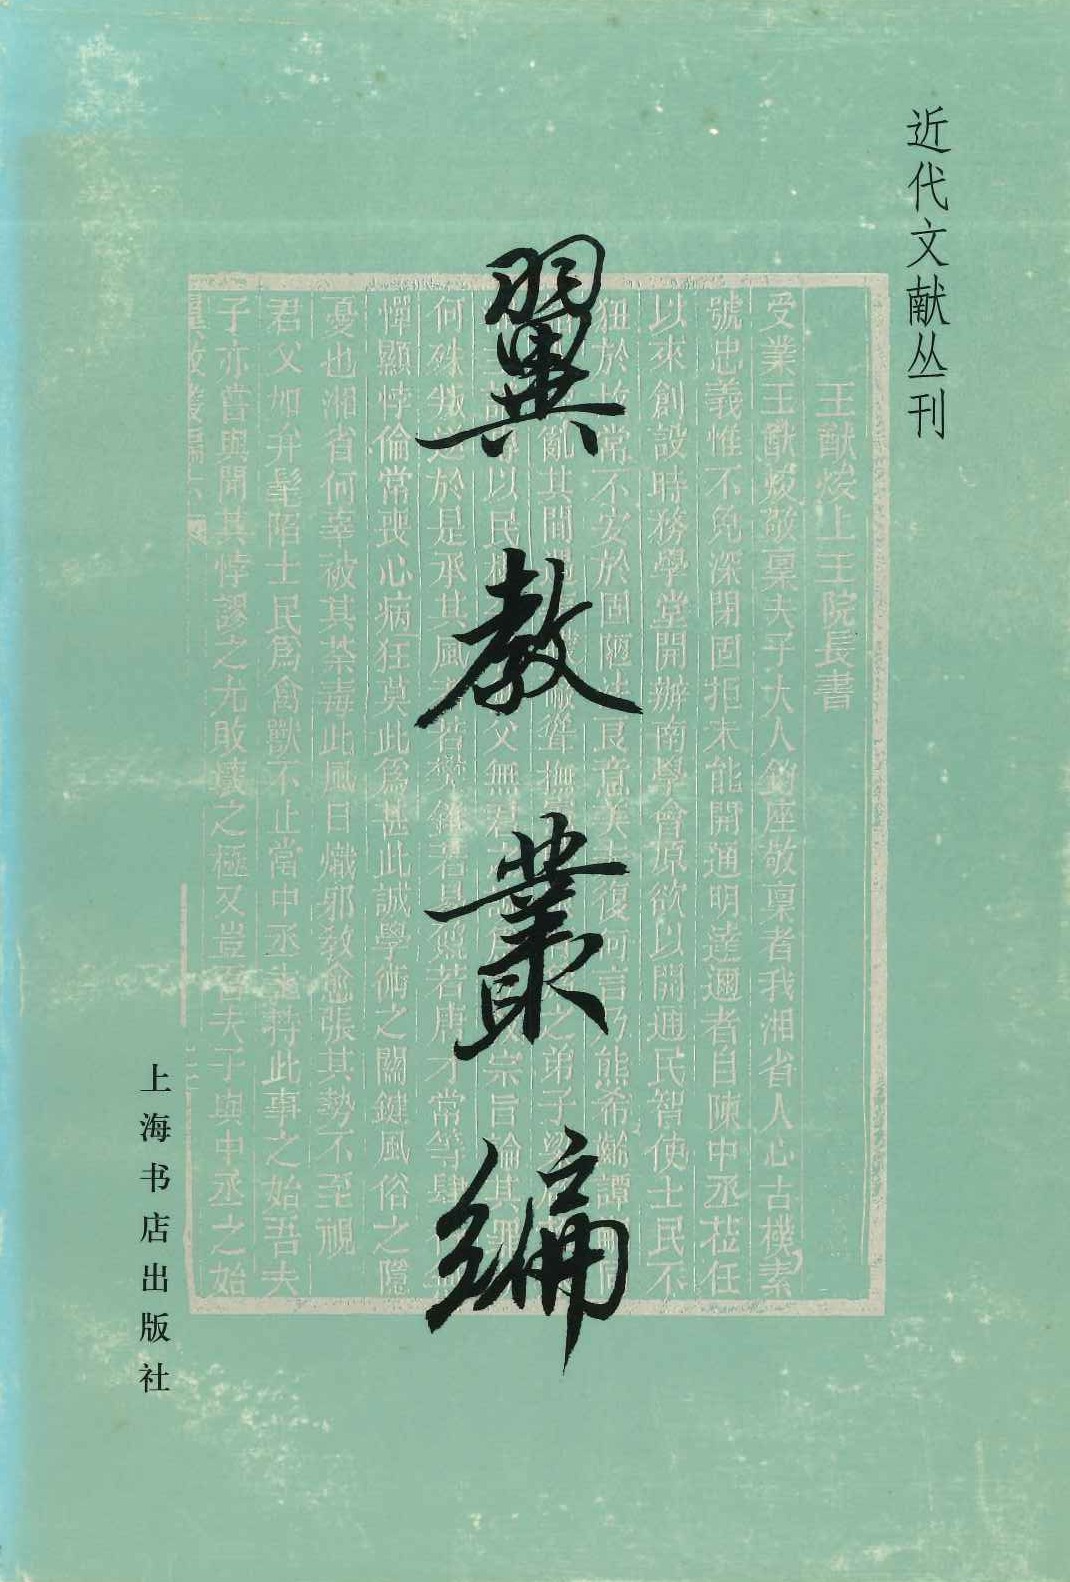 近代文献丛刊
翼教叢編
王猷焌上王院長書
受業王猷焌敬稟夫子大人鈞座敬稟者我湘省人心古樸素
號忠義惟不免深閉固拒未能開通明達邇者自陳中丞莅任
以來創設時務學堂開辦南學會原欲以開通民智使士民不
狃於故常不安於固陋法良意美夫復何言乃熊希齡譚嗣同
亂其間 之弟子梁
以民權 父無君 宗旨論其罪
何殊叛逆於是承其風者若樊錐若易鼐若唐才常等肆
憚顯悖倫常喪心病狂莫此為甚此誠學術之關鍵風俗之隱
憂也湘省何辜被其荼毒此風日熾邪教愈張其勢不至視
君父如弁髦陷士民為禽獸不止當中丞主持此事之始吾夫
子亦嘗與開其悖謬之尤敗壞之極又豈吾夫子與中丞之始
翼教叢編
上海书店出版社